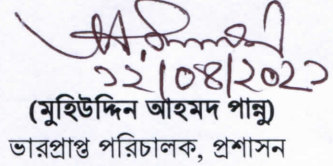 ১২/০৪/২০২১
(মুহিউদ্দিন আহমদ পান্নু)
ভারপ্রাপ্ত পরিচালক, প্রশাসন